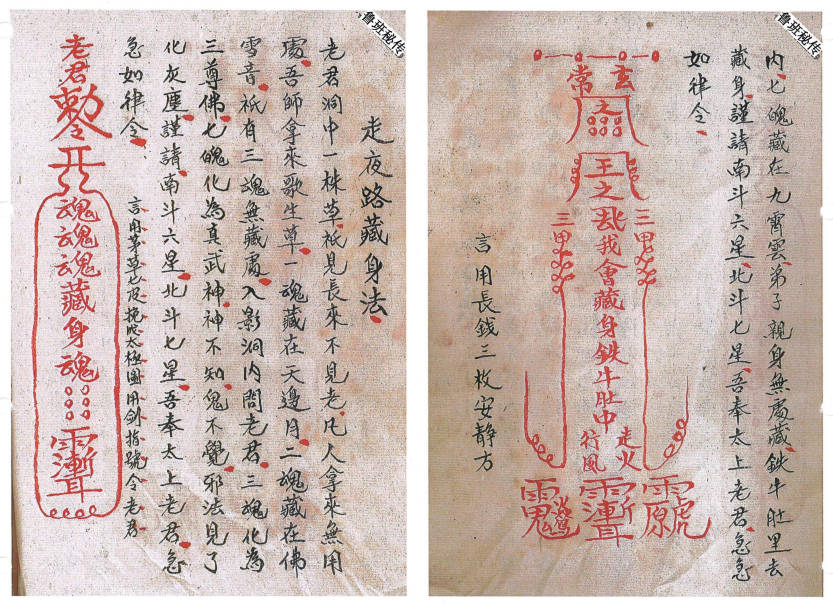 鲁班秘传
内七魄藏在九霄雲弟子親身無處藏鉄牛肚里去
藏身謹請南斗六星北斗七星吾奉太上老君急急
如律令
玄常
之
王之
我會藏身鉄牛肚中
三甲
三甲
走火
行風
言用長钱三枚安静方
鲁班秘传
走夜路藏身法
老君洞中一株草祇見長來不見老凡人拿來無用
處吾師拿來歌生草一魂藏在天邊月二魂藏在佛
雪音祇有三魂無藏處入影洞内問老君三魂化為
三尊佛七魄化為真武神神不知鬼不覺邪法見了
化灰塵謹請南斗六星北斗七星吾奉太上老君急
急如律令
言用茅草七皮挽太極圖用劍指號令老君
老君敕令
魂魂魂藏身魂